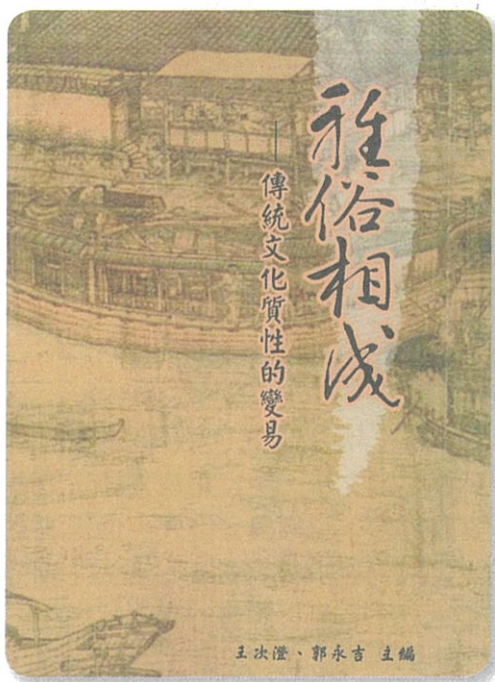 雅俗相成
—傳統文化質性的變易
王次澄、郭永吉 主編